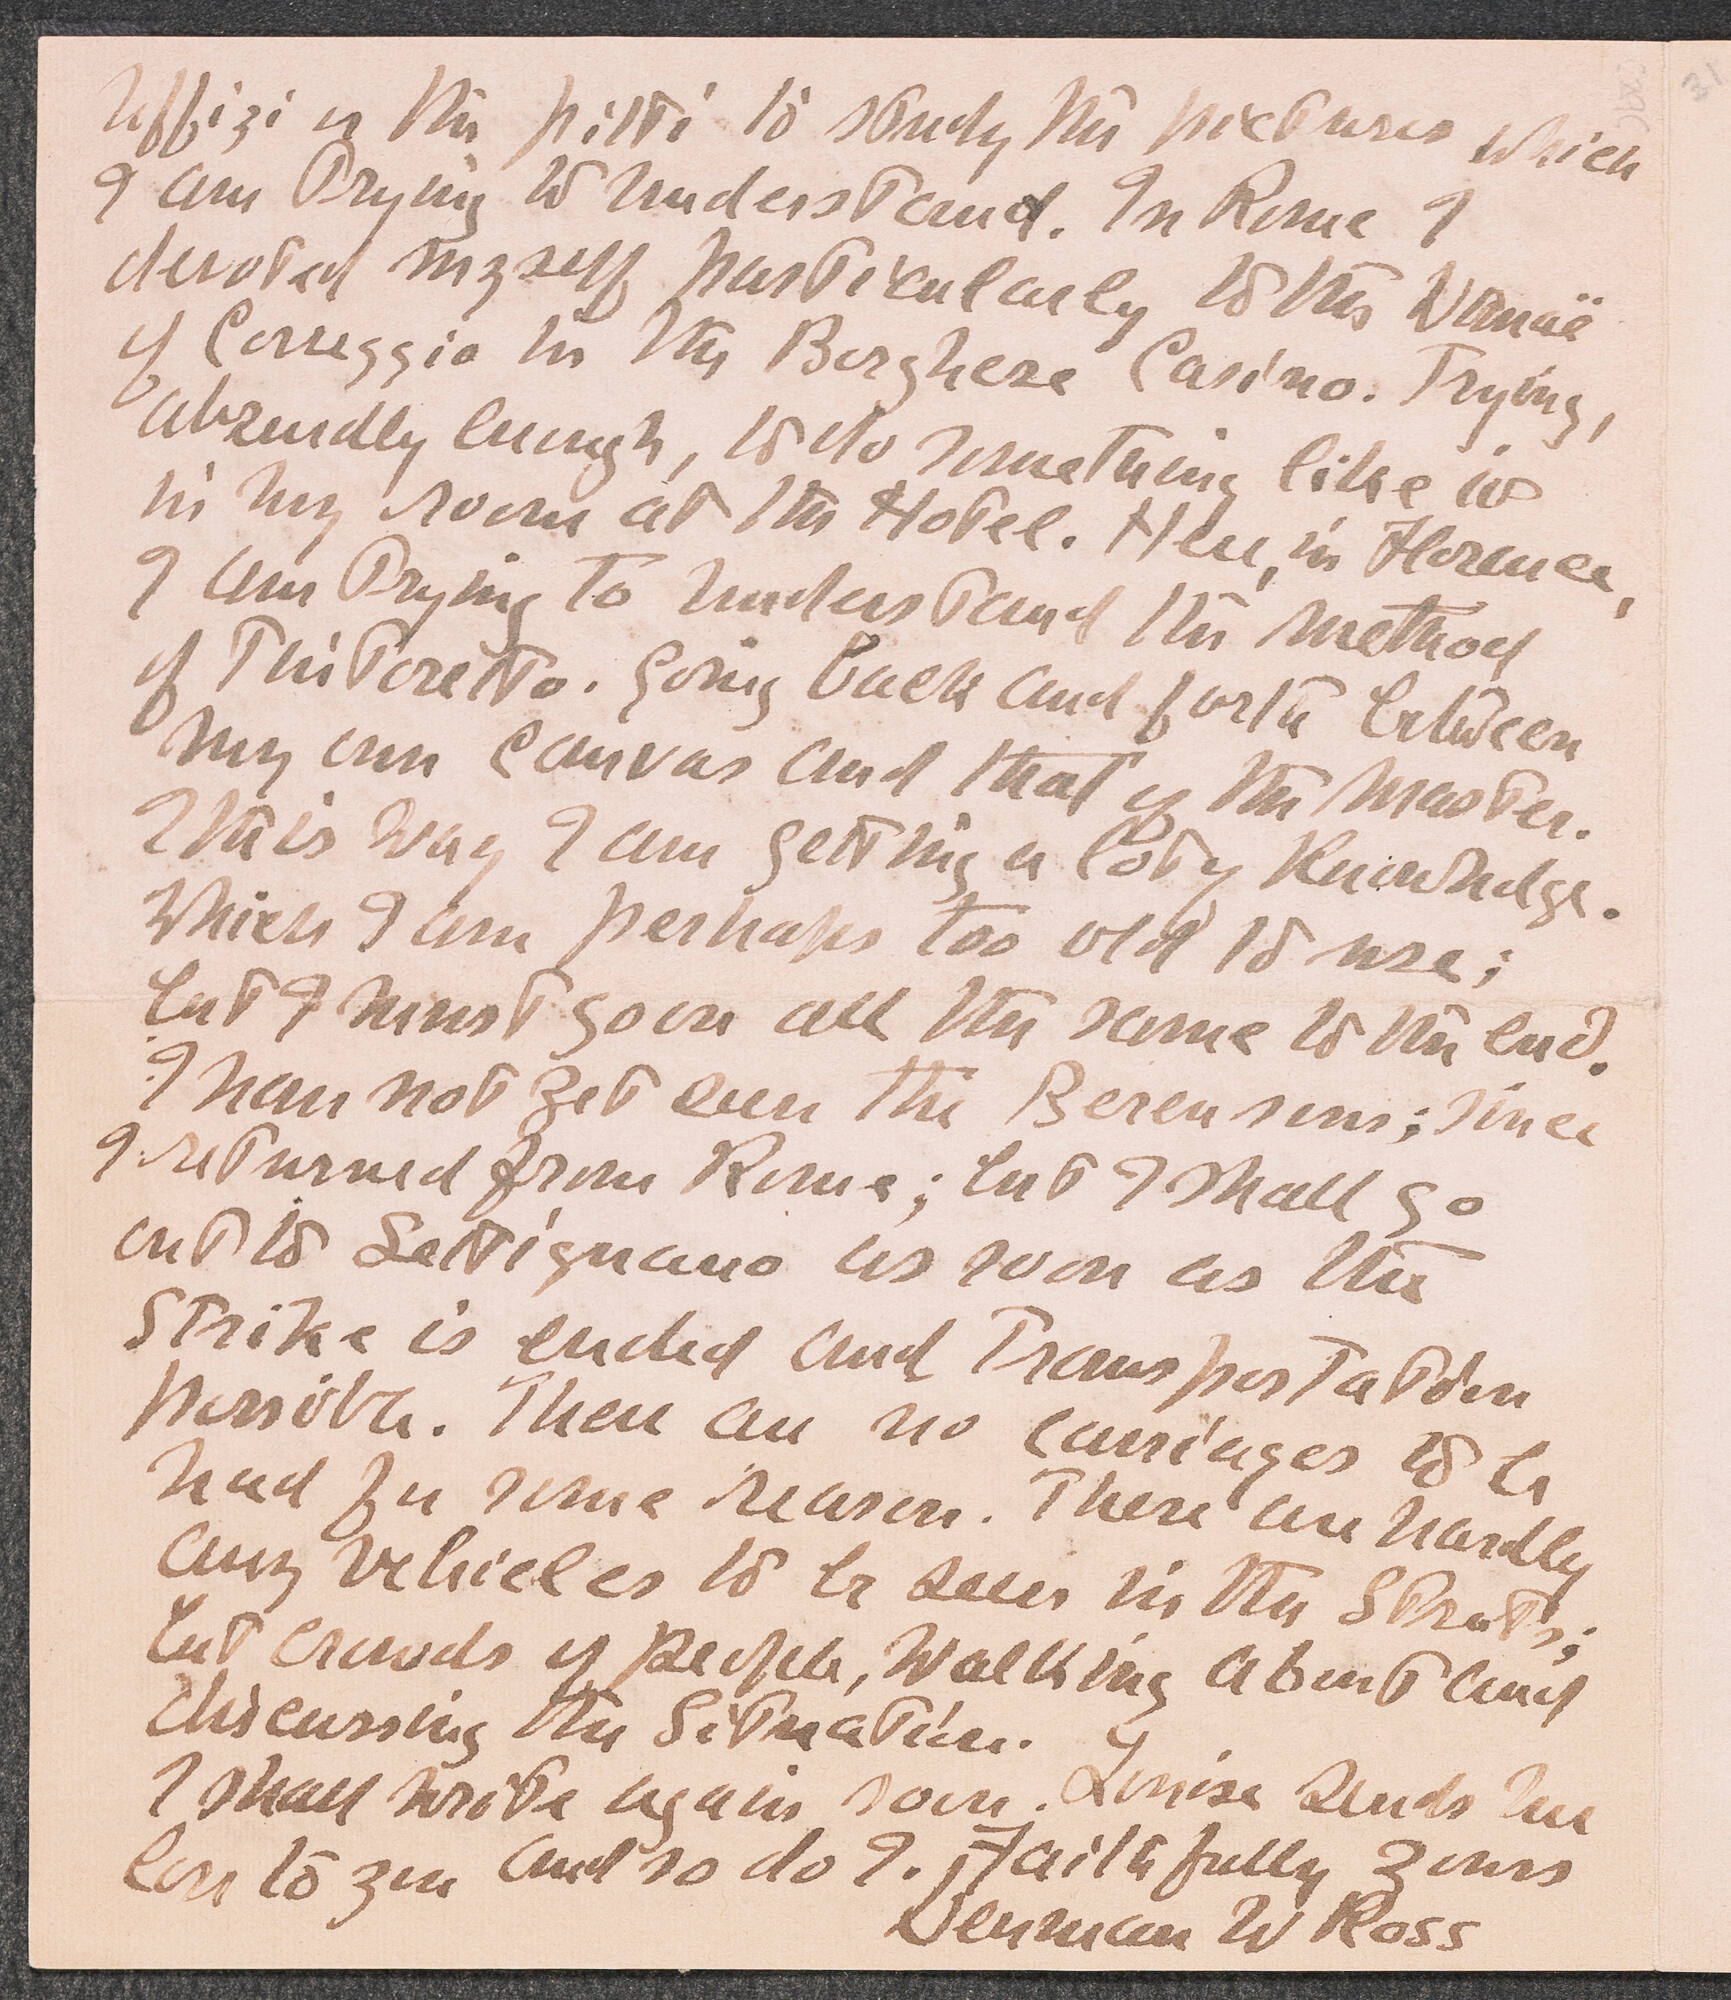 Uffizi or the Pitti to study the pictures which
I am trying to understand. In Rome I
devoted myself particularly to the Danaë
of Correggio in the Borghese Casino. Trying,
absurdly enough, to do something like it
in my room at the Hotel. Here, in Florence,
I am trying to understand the method
of Tintoretto. Going back and forth between
my own canvas and that of the master.
This way I am getting a lot of knowledge.
Which I am perhaps too old to use;
but I must go on all the same to the end.
I have not yet seen the Berensons; since
I returned from Rome; but I shall go
out to Settignano as soon as the
Strike is ended and Transportation
possible. There are no carriages to be
had for some reason. There are hardly
any vehicles to be seen in the Streets;
but crowds of people, walking about and
discussing the Situation.
I shall write again soon. Louise sends her
love to you and so do I. Faithfully yours
Denman W Ross
31